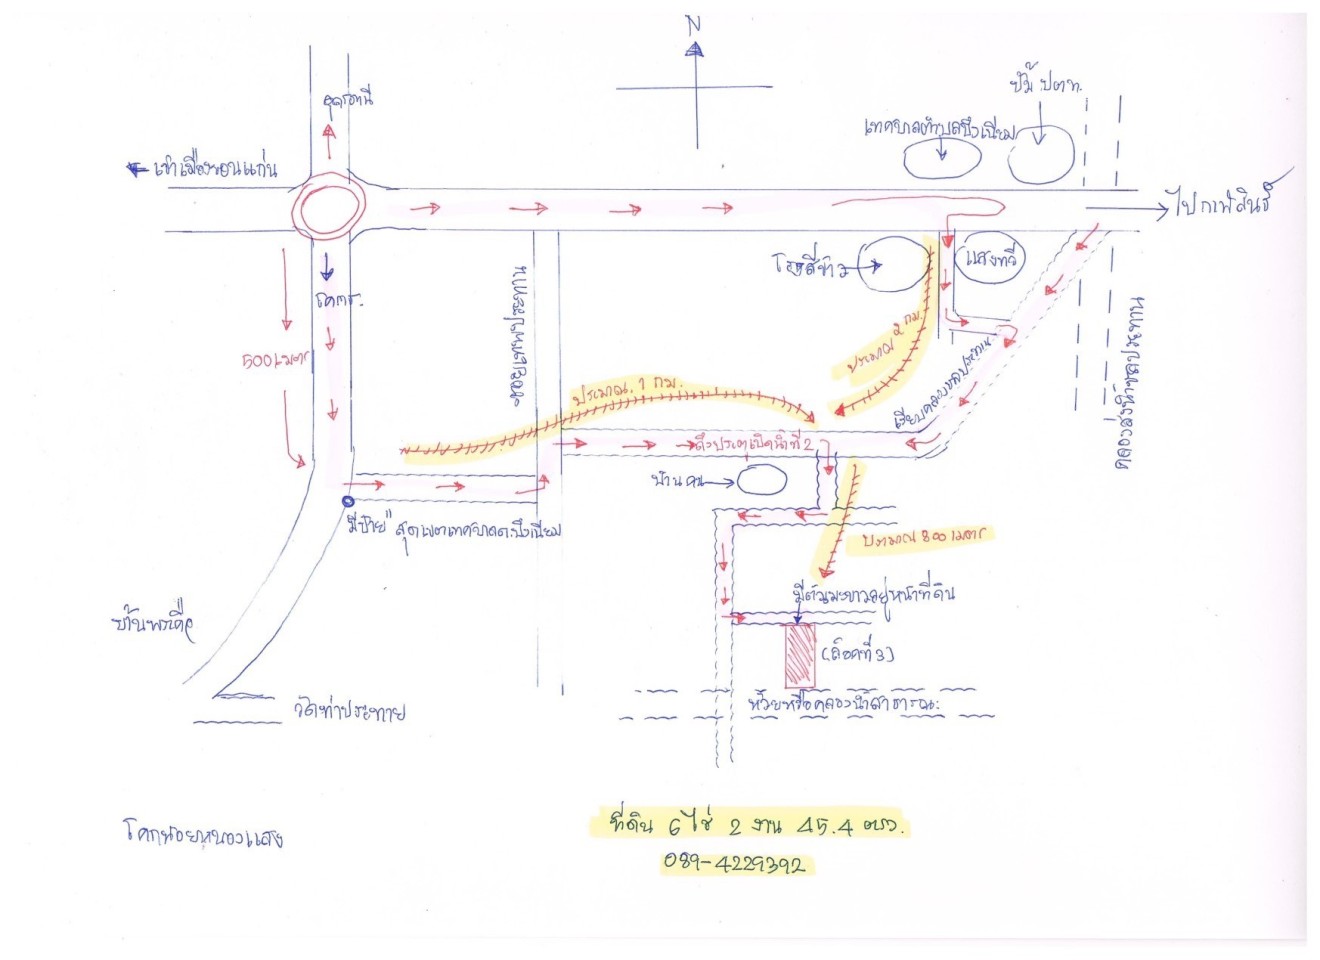 N
ปั๊ม ปตท.
อุดรธานี
เทศบาลตำบลบึงเนียม
เข้าเมืองขอนแก่น
ไปกาฬสินธุ์
โรงสีข้าว
แสงทวี
โคราช
ซอยเทพประทาน
500 เมตร
ประมาณ 2 กม.
คลองส่งน้ำชลประทาน
ประมาณ 1 กม.
เรียบคลองชลประทาน
ถึงประตูเปิดน้ำที่ 2
บ้านคน
มีป้าย "สุดเขตเทศบาลต.บึงเนียม
ประมาณ 800 เมตร
มีต้นมะขามอยู่หน้าที่ดิน
บ้านพระคือ
(ล๊อคที่ 3)
ห้วยหรือคลองน้ำสาธารณะ
วัดท่าประทาย
ที่ดิน 6 ไร่ 2 งาน 45.4 ตรว.
โคกน้อยหนองแสง
089-4229392